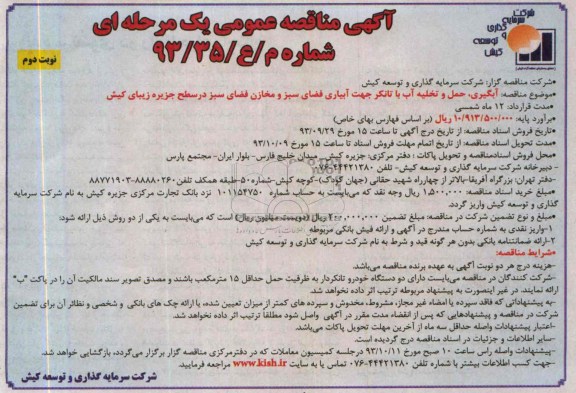 آگهی مناقصه عمومی یک مرحله ای
شماره م/ع/۹۳/۳۵
نوبت دوم
شرکت
سرمایه
گذاری
و
توسعه
کیش
*شرکت مناقصه گزار: شرکت سرمایه گذاری و توسعه کیش
*موضوع مناقصه: آبگیری، حمل و تخلیه آب با تانکر جهت آبیاری فضای سبز و مخازن فضای سبز درسطح جزیره زیبای کیش
*مدت قرارداد: ۱۲ ماه شمسی
*برآورد پایه: ۱۰/۹۱۳/۵۰۰/۰۰۰ ریال (بر اساس فهارس بهای خاص)
*تاریخ فروش اسناد مناقصه: از تاریخ درج آگهی تا ساعت ۱۵ مورخ ۹۳/۰۹/۲۹
*مدت تحویل اسناد مناقصه: از تاریخ اتمام مهلت فروش اسناد تا ساعت ۱۵ مورخ ۹۳/۱۰/۰۹
*محل فروش اسنادمناقصه و تحویل پاکات: دفتر مرکزی: جزیره کیش- میدان خلیج فارس- بلوار ایران- مجتمع پارس
- دبیرخانه شرکت سرمایه گذاری و توسعه کیش- تلفن ۴۴۴۲۱۳۸۰-۰۷۶
-دفتر تهران: بزرگراه آفریقا-بالاتر از چهارراه شهید حقانی (جهان کودک)-کوچه کیش-شماره۵۰-طبقه همکف تلفن ۸۸۸۸۰۲۶۰-۸۸۷۷۱۹۰۳
*مبلغ خرید اسناد مناقصه: ۱,۵۰۰,۰۰۰ ریال وجه نقد که می‌بایست به حساب شماره ۱۰۱۱۵۴۷۵۰ نزد بانک تجارت مرکزی جزیره کیش به نام شرکت سرمایه
گذاری و توسعه کیش واریز گردد.
*مبلغ و نوع تضمین شرکت در مناقصه: مبلغ تضمین ریال است که می‌بایست به یکی از دو روش ذیل ارائه شود:
۱-واریز نقدی به شماره حساب مندرج در آگهی و ارائه فیش بانکی مربوطه
۲-ارائه ضمانتنامه بانکی بدون هر گونه قید و شرط به نام شرکت سرمایه گذاری و توسعه کیش
*شرایط مناقصه:
-هزینه درج هر دو نوبت آگهی به عهده برنده مناقصه می‌باشد.
-شرکت کنندگان در مناقصه می‌بایست دارای دو دستگاه خودرو تانکردار به ظرفیت حمل حداقل ۱۵ مترمکعب باشند و مصدق تصویر سند مالکیت آن را در پاکت "ب"
ارائه نمایند. در غیر اینصورت به پیشنهاد مربوطه ترتیب اثر داده نخواهد شد.
-به پیشنهاداتی که فاقد سپرده یا امضاء غیر مجاز، مشروط، مخدوش و سپرده های کمتر از میزان تعیین شده، یا ارائه چک های بانکی و شخصی و نظائر آن برای تضمین
شرکت در مناقصه و پیشنهادهایی که پس از انقضاء مدت مقرر در آگهی واصل شود مطلقا ترتیب اثر داده نخواهد شد.
-اعتبار پیشنهادات واصله حداقل سه ماه از آخرین مهلت تحویل پاکات می‌باشد.
-سایر اطلاعات و جزئیات در اسناد مناقصه درج گردیده است.
-پیشنهادات واصله راس ساعت ۱۰ صبح مورخ ۹۳/۱۰/۱۱ درجلسه کمیسیون معاملات که در دفترمرکزی مناقصه گزار برگزار می‌گردد، بازگشایی خواهد شد.
-جهت کسب اطلاعات بیشتر با شماره تلفن ۴۴۴۲۱۳۸۰-۰۷۶ تماس یا به سایت www.kish.ir مراجعه فرمایید.
شرکت سرمایه گذاری و توسعه کیش